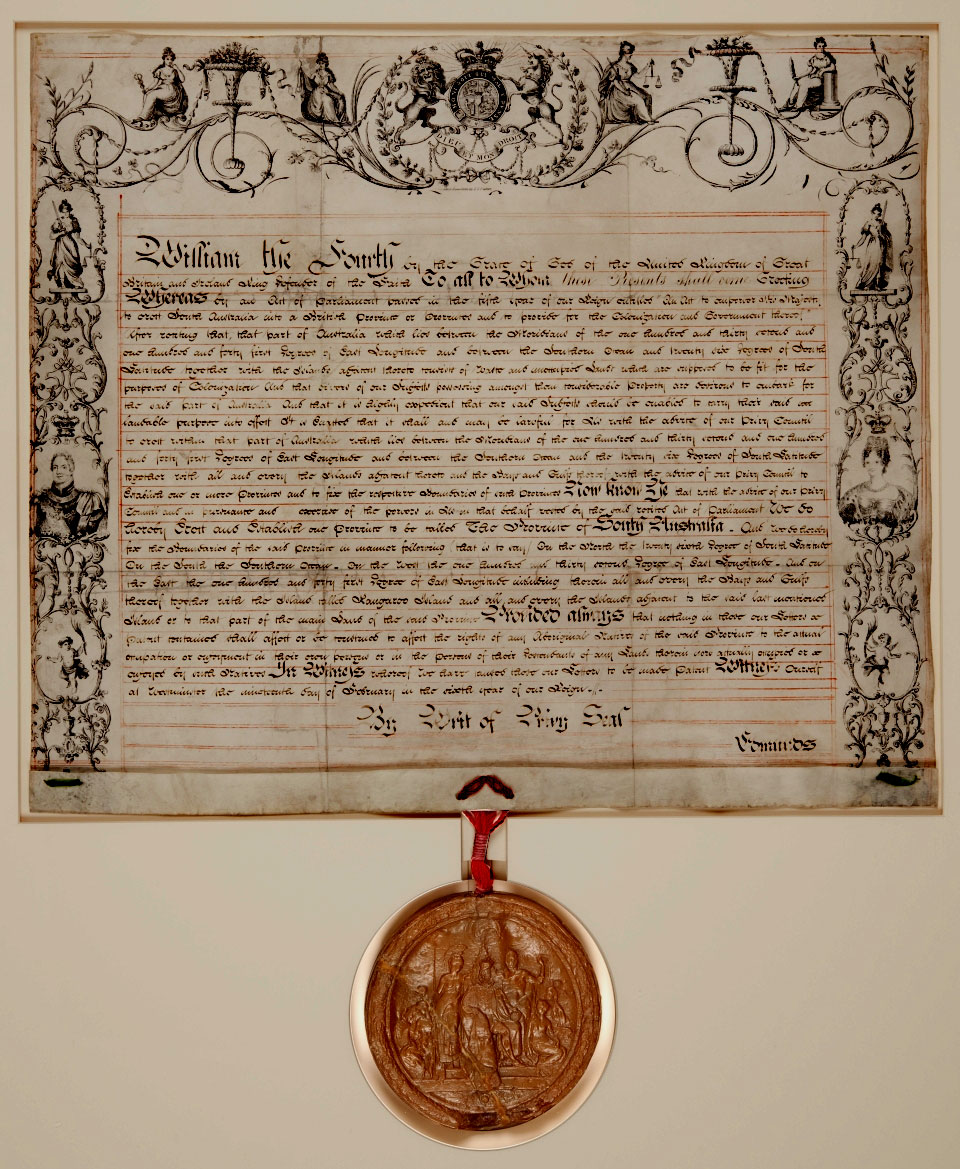 DIEU ET MON DROIT
William the Fourth by the Grace of God of the United Kingdom of Great
Britain and Ireland King Defender of the Faith To all to Whom these Presents shall come Greeting
Whereas by an Act of Parliament passed in the fifth year of our Reign entitled An Act to empower His Majesty
to erect South Australia into a British Province or Provinces and to provide for the Colonization and Government thereof
After reciting that, that part of Australia which lies between the Meridians of the one hundred and thirty second and
one hundred and forty first Degrees of East Longitude and between the Southern Ocean and twenty six Degrees of South
Latitude together with the Islands adjacent thereto consist of Waste and unoccupied Lands which are supposed to be fit for the
purposes of Colonization And that divers of our Subjects possessing amongst them considerable Property are desirous to embark for
the said part of Australia And that it is highly expedient that our said Subjects should be enabled to carry their said
laudable purpose into effect It is Enacted that it shall and may be lawful for Us with the advice of our Privy Council
to erect within that part of Australia which lies between the Meridians of the one hundred and thirty second and one hundred
and forty first Degrees of East Longitude and between the Southern Ocean and the twenty six Degrees of South Latitude
together with all and every the Islands adjacent thereto and the Bays and Gulfs thereof with the advice of our Privy Council to
Establish one or more Provinces and to fix the respective Boundaries of such Provinces Now Know Ye that with the advice of our Privy
Council and in pursuance and exercise of the powers in Us in that behalf vested by the said recited Act of Parliament We do
hereby Erect and Establish one Province to be called The Province of South Australia - And we do hereby
fix the Boundaries of the said Province in manner following (that is to say) On the North the twenty sixth Degree of South Latitude
On the South the Southern Ocean - On the West the one hundred and thirty second Degree of East Longitude - And on
the East the one hundred and forty first Degree of East Longitude including therein all and every the Bays and Gulfs
thereof together with the Island called Kangaroo Island and all and every the Islands adjacent to the said last mentioned
Island or to that part of the main Land of the said Province Provided always that nothing in those our Letters
Patent contained shall affect or be construed to affect the rights of any Aboriginal Natives of the said Province to the actual
occupation or enjoyment in their own persons or in the Persons of their Descendants of any Lands therein now actually occupied or
enjoyed by such Natives In Witness whereof We have caused these our Letters to be made Patent Witness Ourself
at Westminster the nineteenth day of February in the sixth year of our Reign
By Writ of Privy Seal
Edmunds